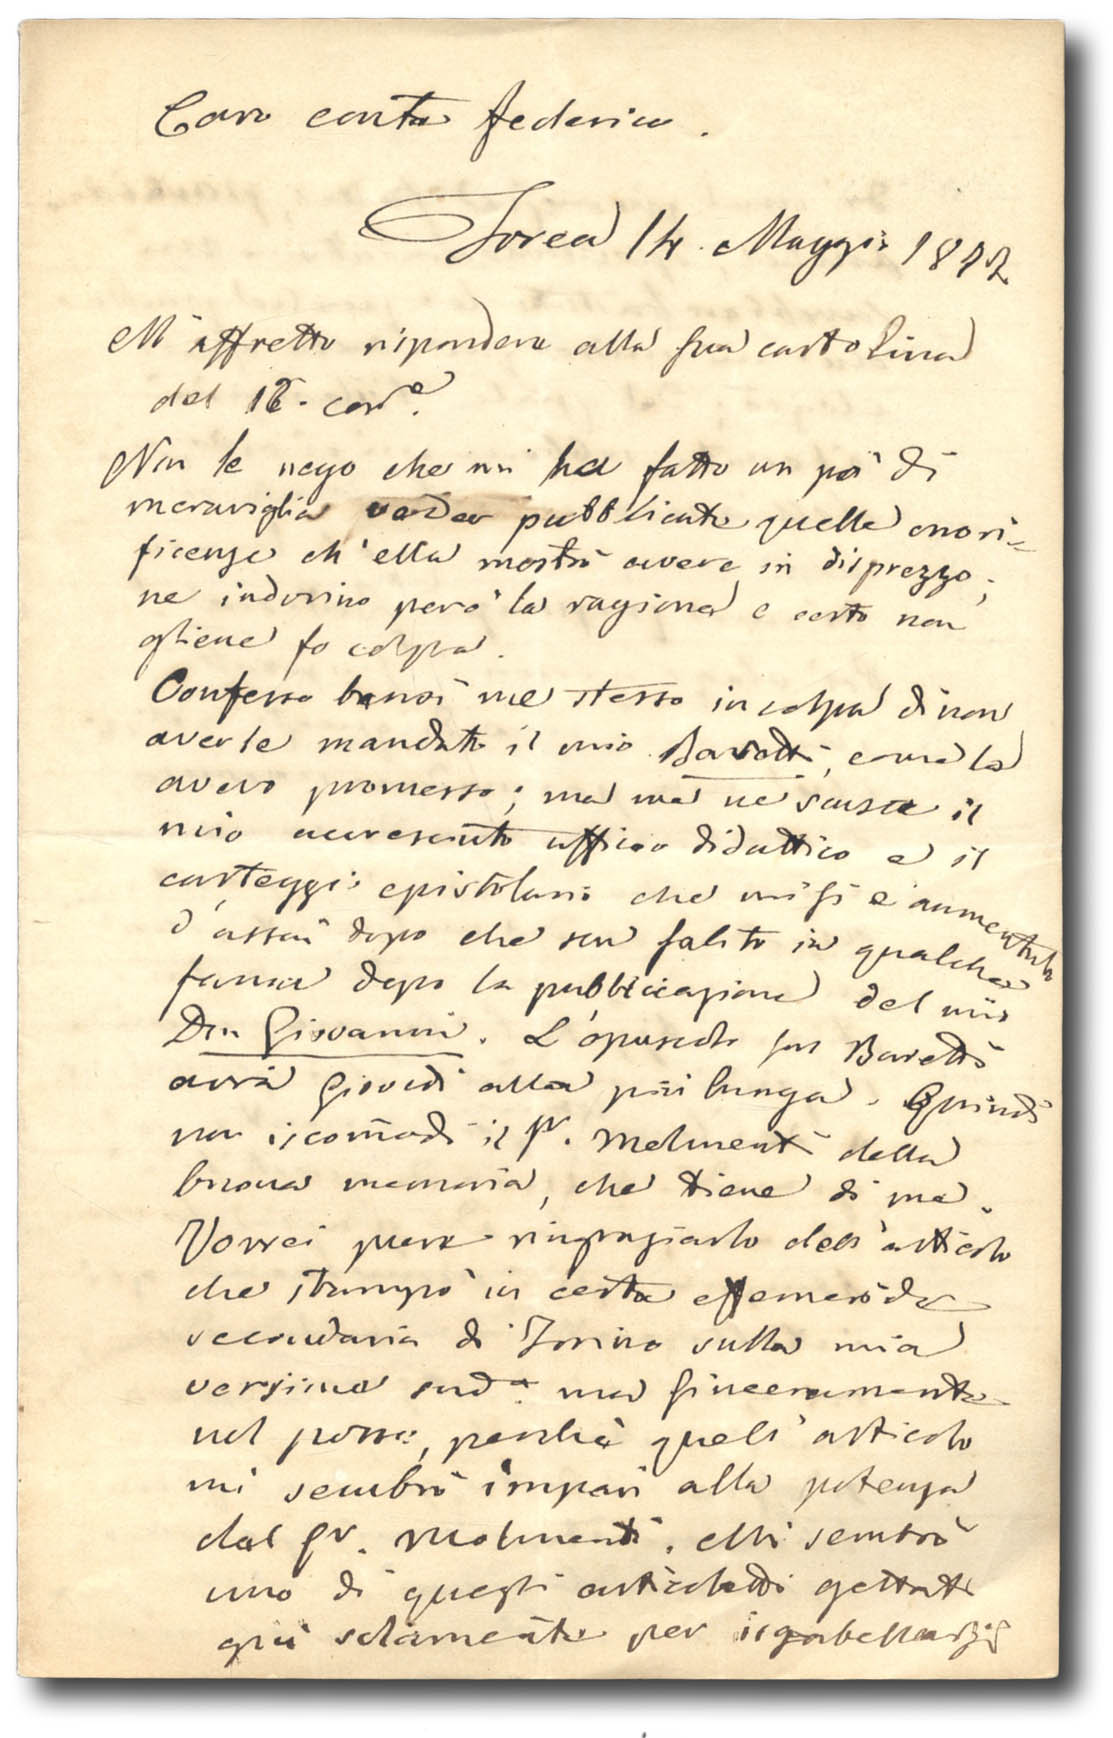 Caro conte Federico.
Ivrea 14. Maggio 1882
M'affretto rispondere alla sua cartolina
del 12. corr.e
Non le nego che mi ha fatto un po' di
meraviglia veder pubblicate quelle onori-
ficenze ch'ella mostrò avere in disprezzo;
ne indovino però la ragione e certo non
gliene fo colpa.
Confesso bensì me stesso in colpa di non
averle mandato il mio Baretti, come le
avevo promesso; ma me ne scusa il
mio accresciuto ufficio didattico e il
carteggio epistolario che mi si è aumentato
d'assai dopo che son salito in qualche
fama dopo la pubblicazione del mio
Don Giovanni. L'opuscolo sul Baretti
avrà Giovedì alla più lunga. Quindi
non iscomodi il Pr. Molmenti della
buona memoria, che tiene di me.
Vorrei pure ringraziarlo dell'articolo
che stampò in certa effemeride
secondaria di Torino sulla mia
versione suda ma sinceramente
nol posso, perchè quell'articolo
mi sembrò impari alla potenza
del Pr. Molmenti. Mi sembrò
uno di quegli articoletti gettati
giù solamente per isgabellarsi